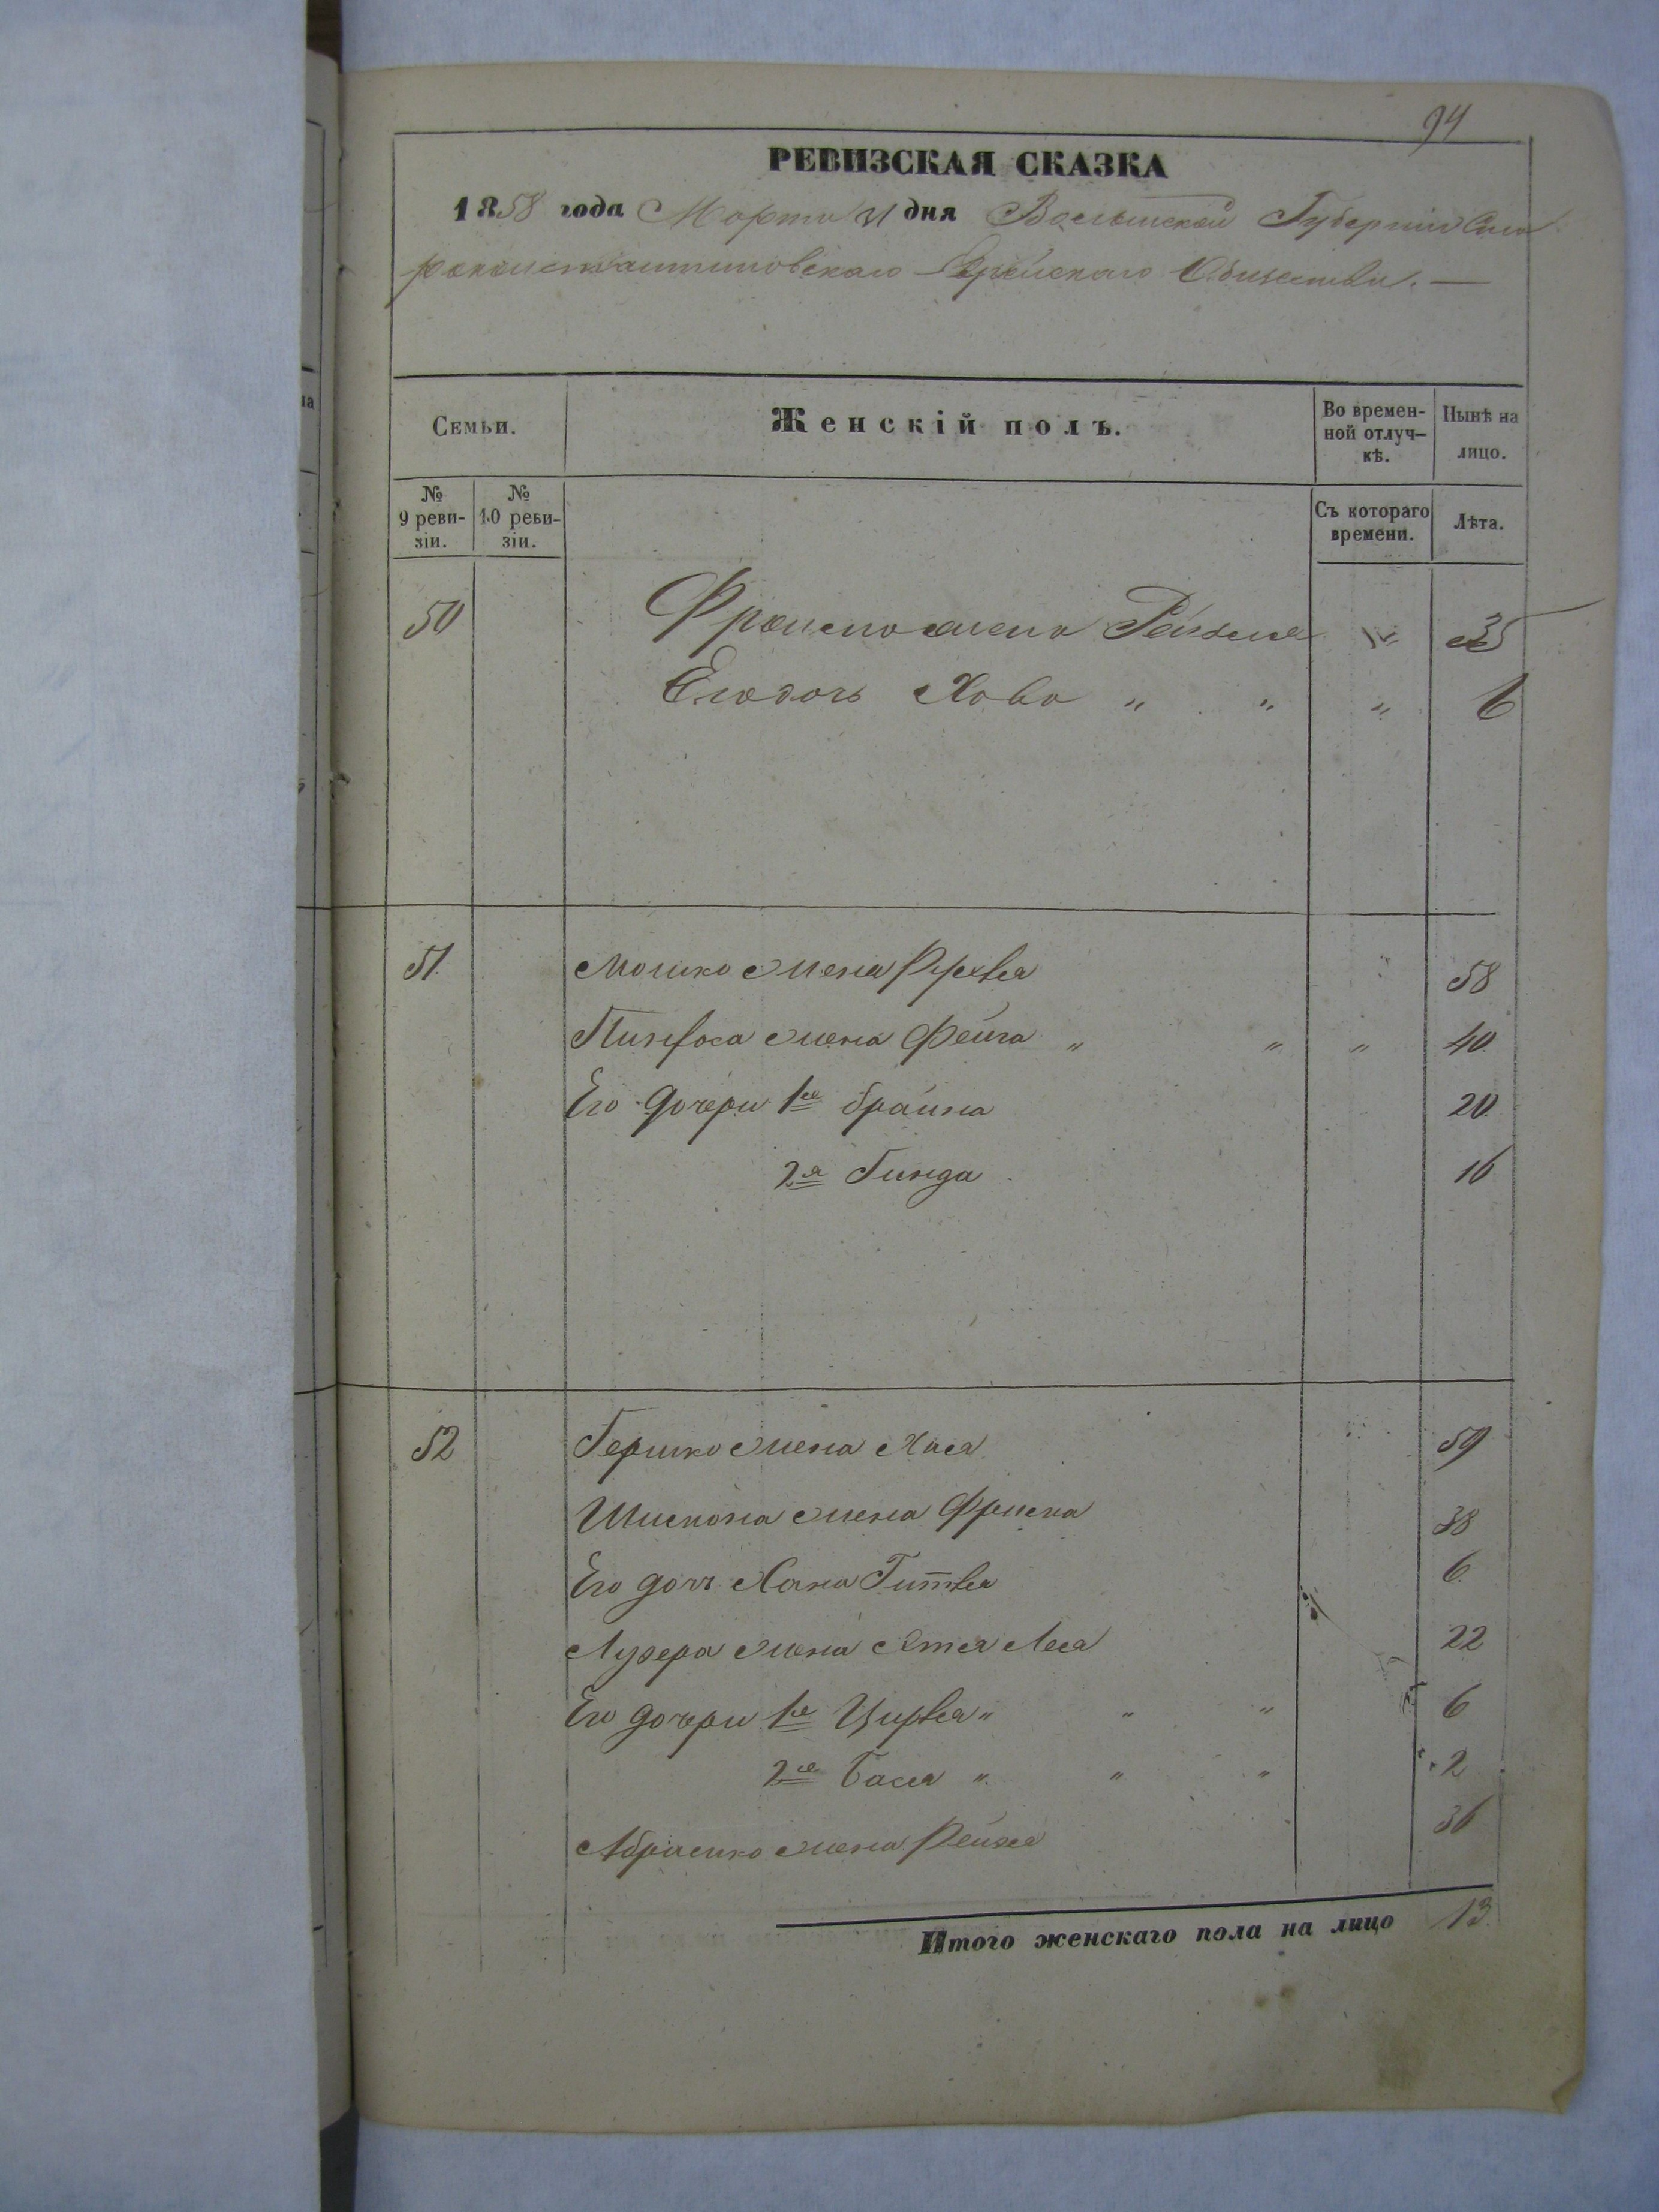 94
РЕВИЗСКАЯ СКАЗКА
1858 года Марта 31 дня Волынской Губернии Ста
роконстантиновскаго Еврейскаго Общества. —
Семьи.
Женскій полъ.
Во времен-
ной отлуч-
кѣ.
Нынѣ на
лицо.
№
9 реви-
зіи.
№
10 реви-
зіи.
Съ котораго
времени.
Лѣта.
50 жена Рейзля " 35
Его дочь Хова " " " 6
51. Мошко жена Рухля 58
Пинхоса жена Фейга " " " 40
Его дочери 1я Брайна 20
2я Гинда 16
52 Гершко жена Хася 59
жена 38
Его дочь Хана Гитля 6
Лузера жена Лея 22
Его дочери 1я Цирля " " " 6
2я Бася " " " 2
Абрамко жена Рейзя 36
Итого женскаго пола на лицо 13.